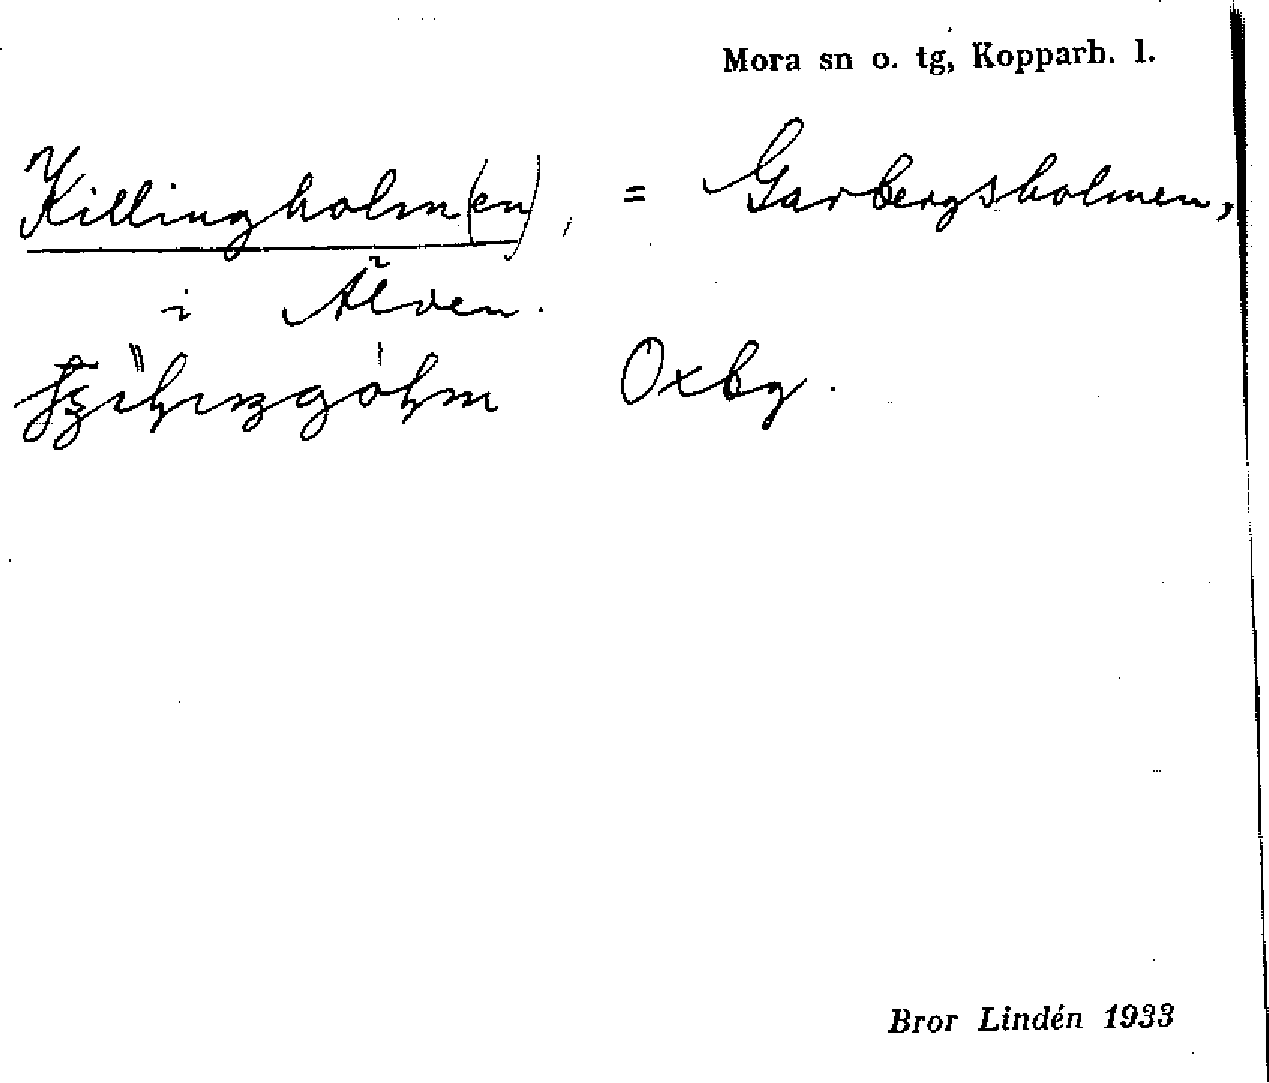 Mora sn o. tg, Kopparb. l.
Killingholm(en), = Garbergsholmen,
i Älven.
Oxbg.
Bror Lindén 1933